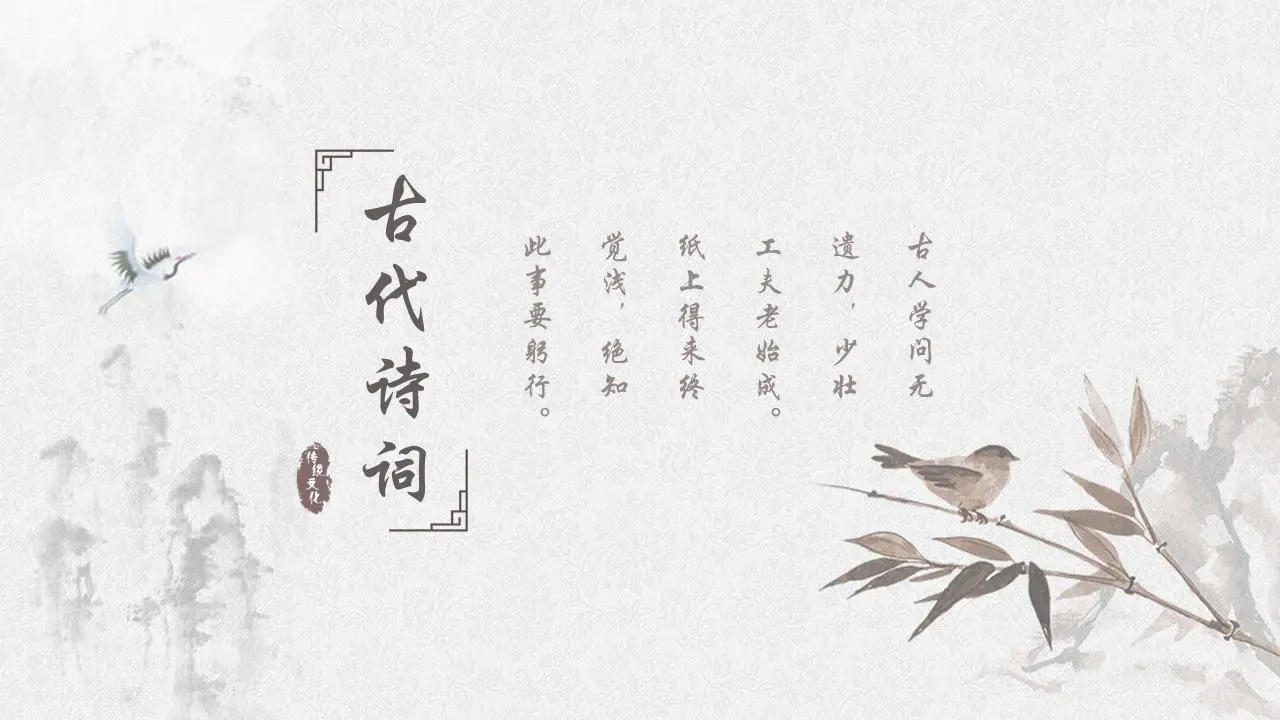 古人学问无
遗力，少壮
工夫老始成。
纸上得来终
觉浅，绝知
此事要躬行。
古代诗词
传统
文化